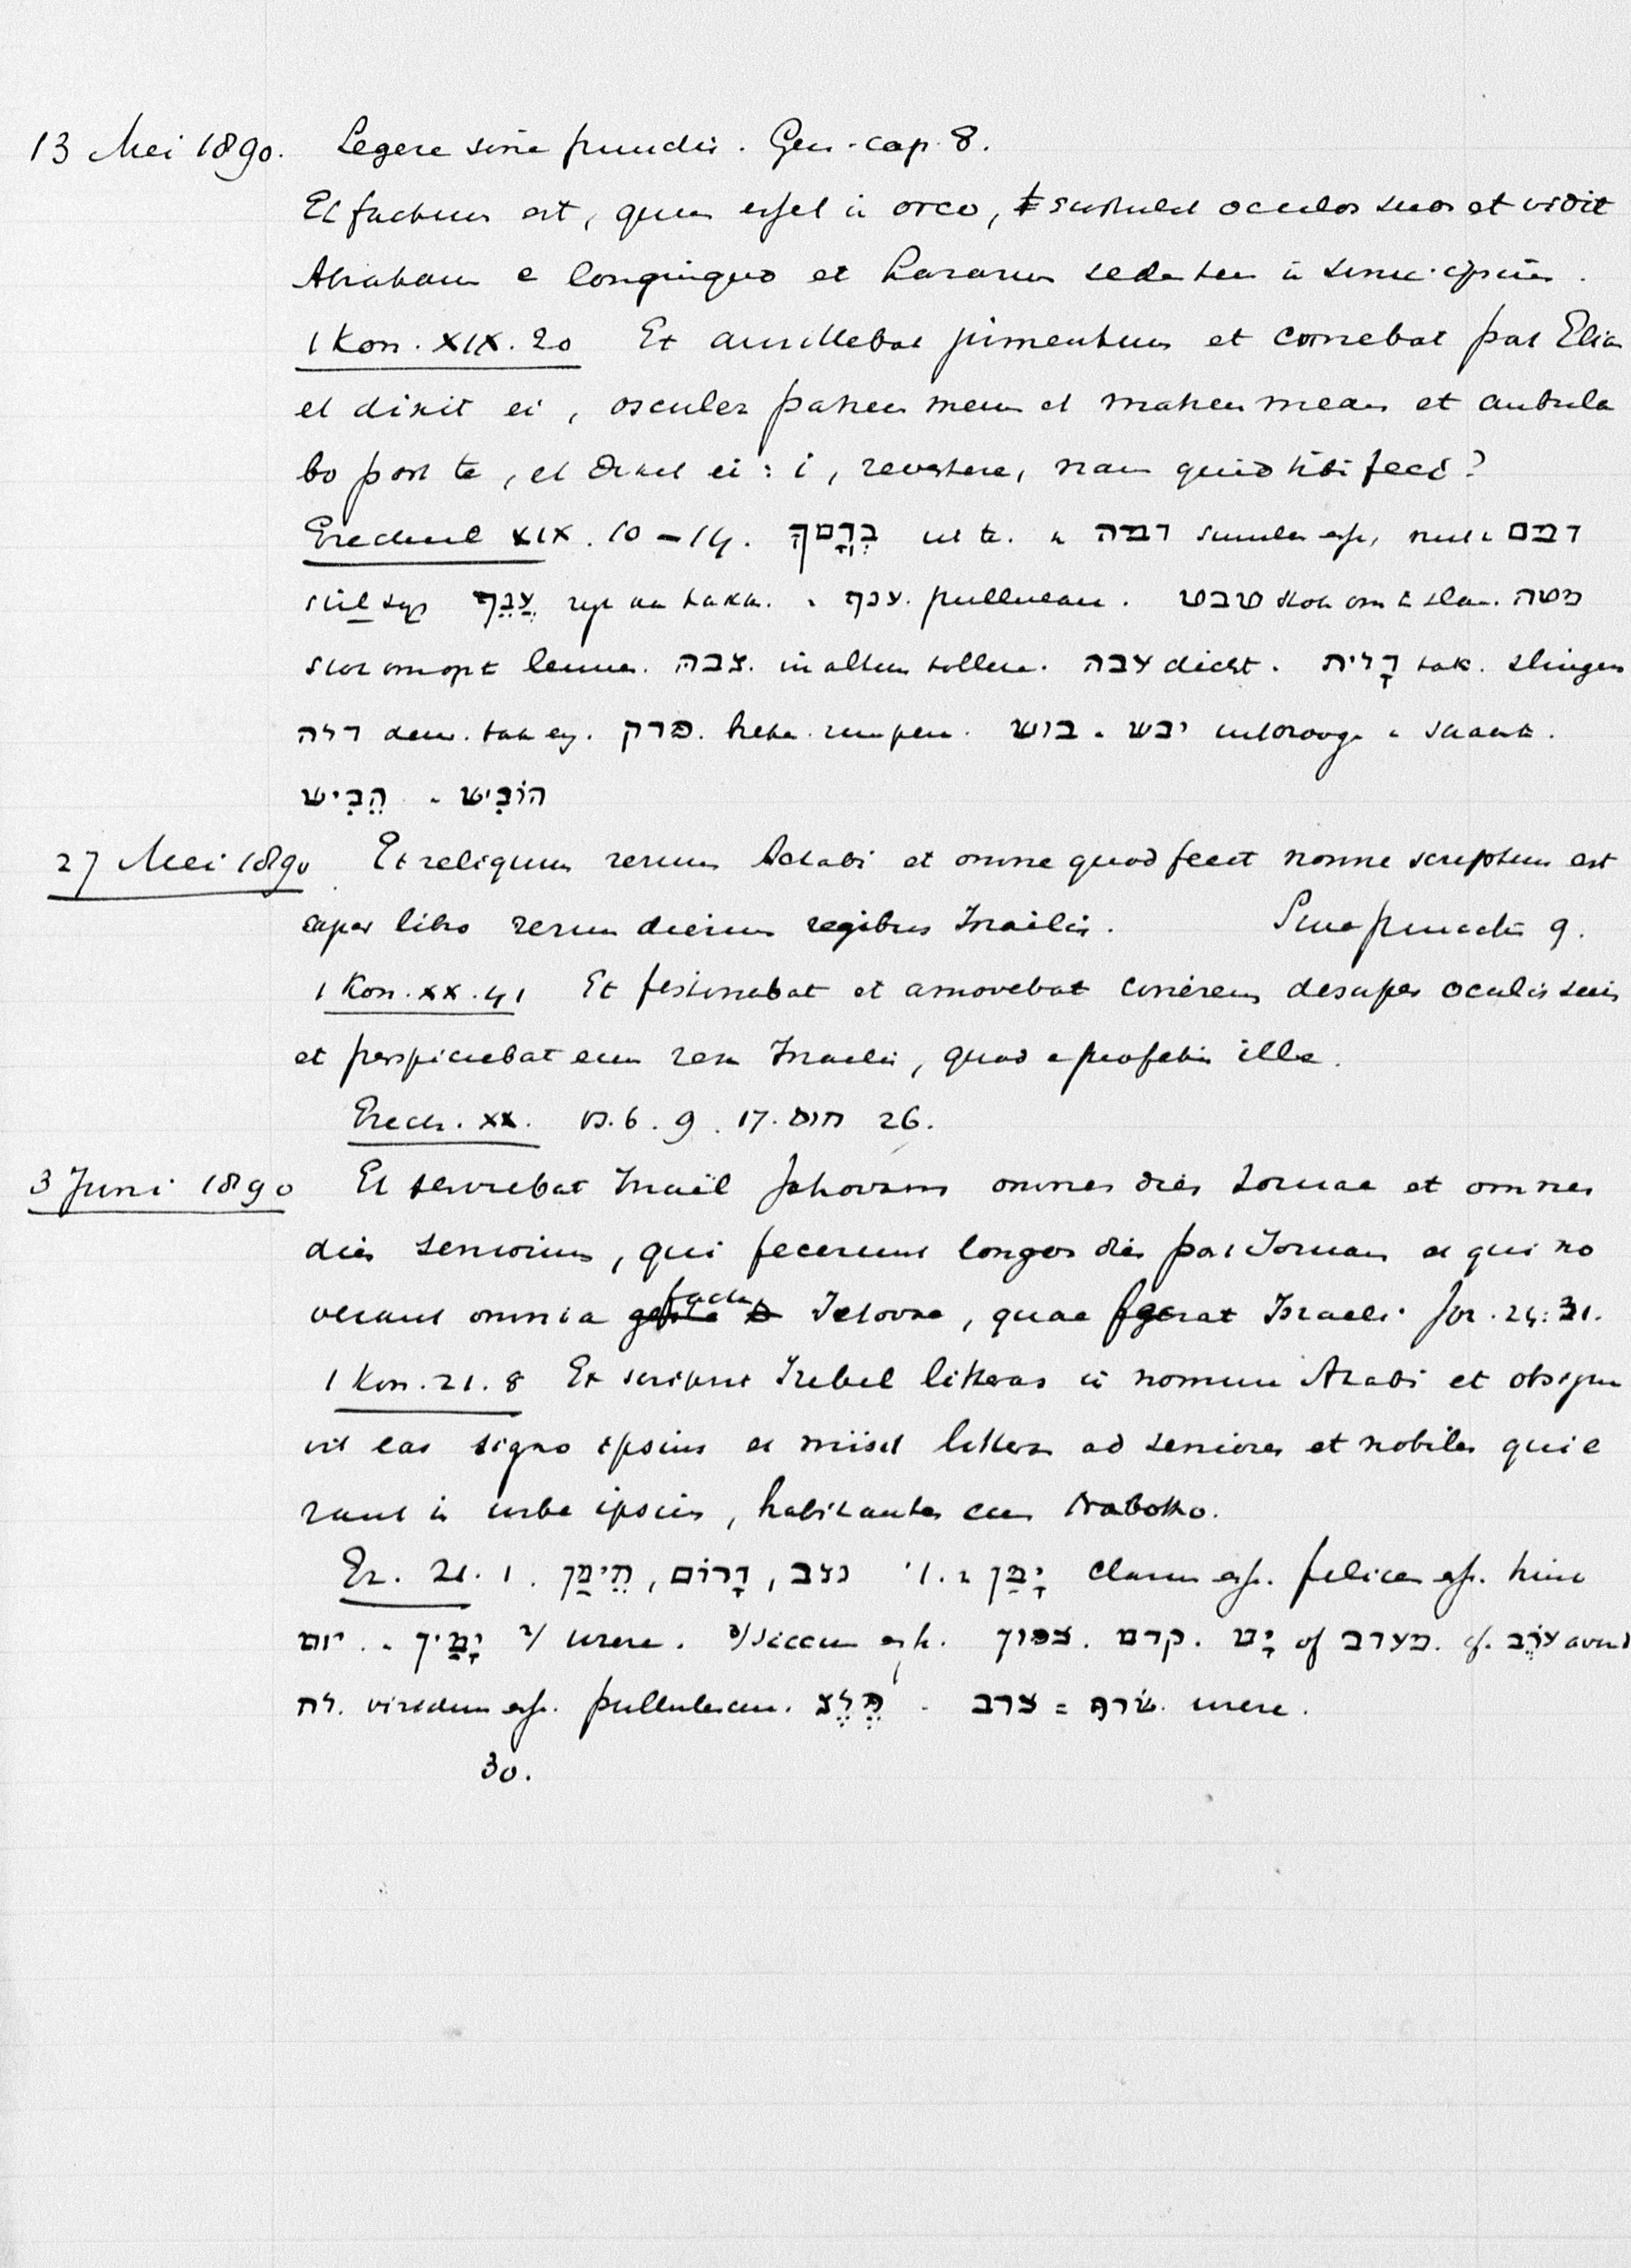 13 Mei 1890. Legere sine punctis. Gen. cap. 8.
Et factum est, quum esset in orco, sustulit oculos suos et vidit
Abraham e longinquo et Lazarum sedentem in sinu ipsius.
1 Kon. XIX. 20 Et jumentum et currebat post Elia
et dixit ei, osculer patrem meum et matrem meam et ambula
bo post te, et dixit ei: i, revertere, nam quid tibi feci?
Ezechiel XIX. 10-14. בְּדָמְךָ uit דמה similis esse, דמם
עָנֵף . ענף. pullulare. שבט stok om te slaan. מטה
stok om op te leunen. גבה. in altum tollere. עבה dicht. דָּלִית tak. slingeren
דלה פרק. יבש . בוש uitdroogen
הוֹבִישׁ הֵבִישׁ
27 Mei 1890 Et reliquum rerum Achabi et omne quod fecit nonne scriptum est
super libro rerum dierum regibus Israelis. Sine punctis 9.
1 Kon. XX. 41 Et festinabat et amovebat cinerem desuper oculis suis
et perspiciebat eum rex Israelis, quod e profetis ille.
Ezech. XX. 6. 9. 17. חוס 26.
3 Juni 1890 Et serviebat Israël Jehovam omnes dies Josuae et omnes
dies seniorum, qui fecerunt longos dies post Josuam et qui no
verant omnia facta Jehovae, quae Israeli. Jos. 24:31.
1 Kon. 21. 8 Et scripsit Izebel litteras in nomine Acabi et obsigna
vit eas signo ipsius et misit litteras ad seniores et nobiles qui e
rant in urbe ipsius, habitantes cum Nabotho.
Ez. 21. 1. נגב, דָּרוֹם, תֵּימָן יָמַן clarum esse. felicem esse. hinc
יום . יָמִין 2/ urere. 3/ siccum esse. צפון. קדם. יָם of מערב. cf. עֹרֵב
לח. viridem esse. pullulescere. צרב = שׂרף. urere.
30.